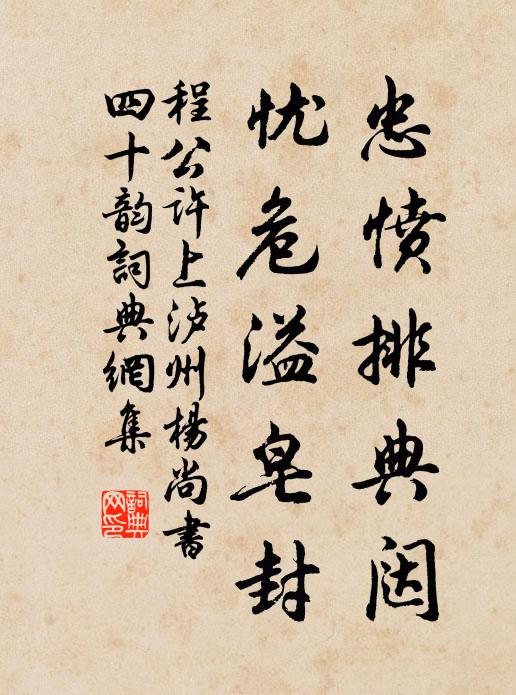 忠愤排典闼
忧危溢皂封
程公许上泸州杨尚書
四十韵詞典網集
詞典
网印